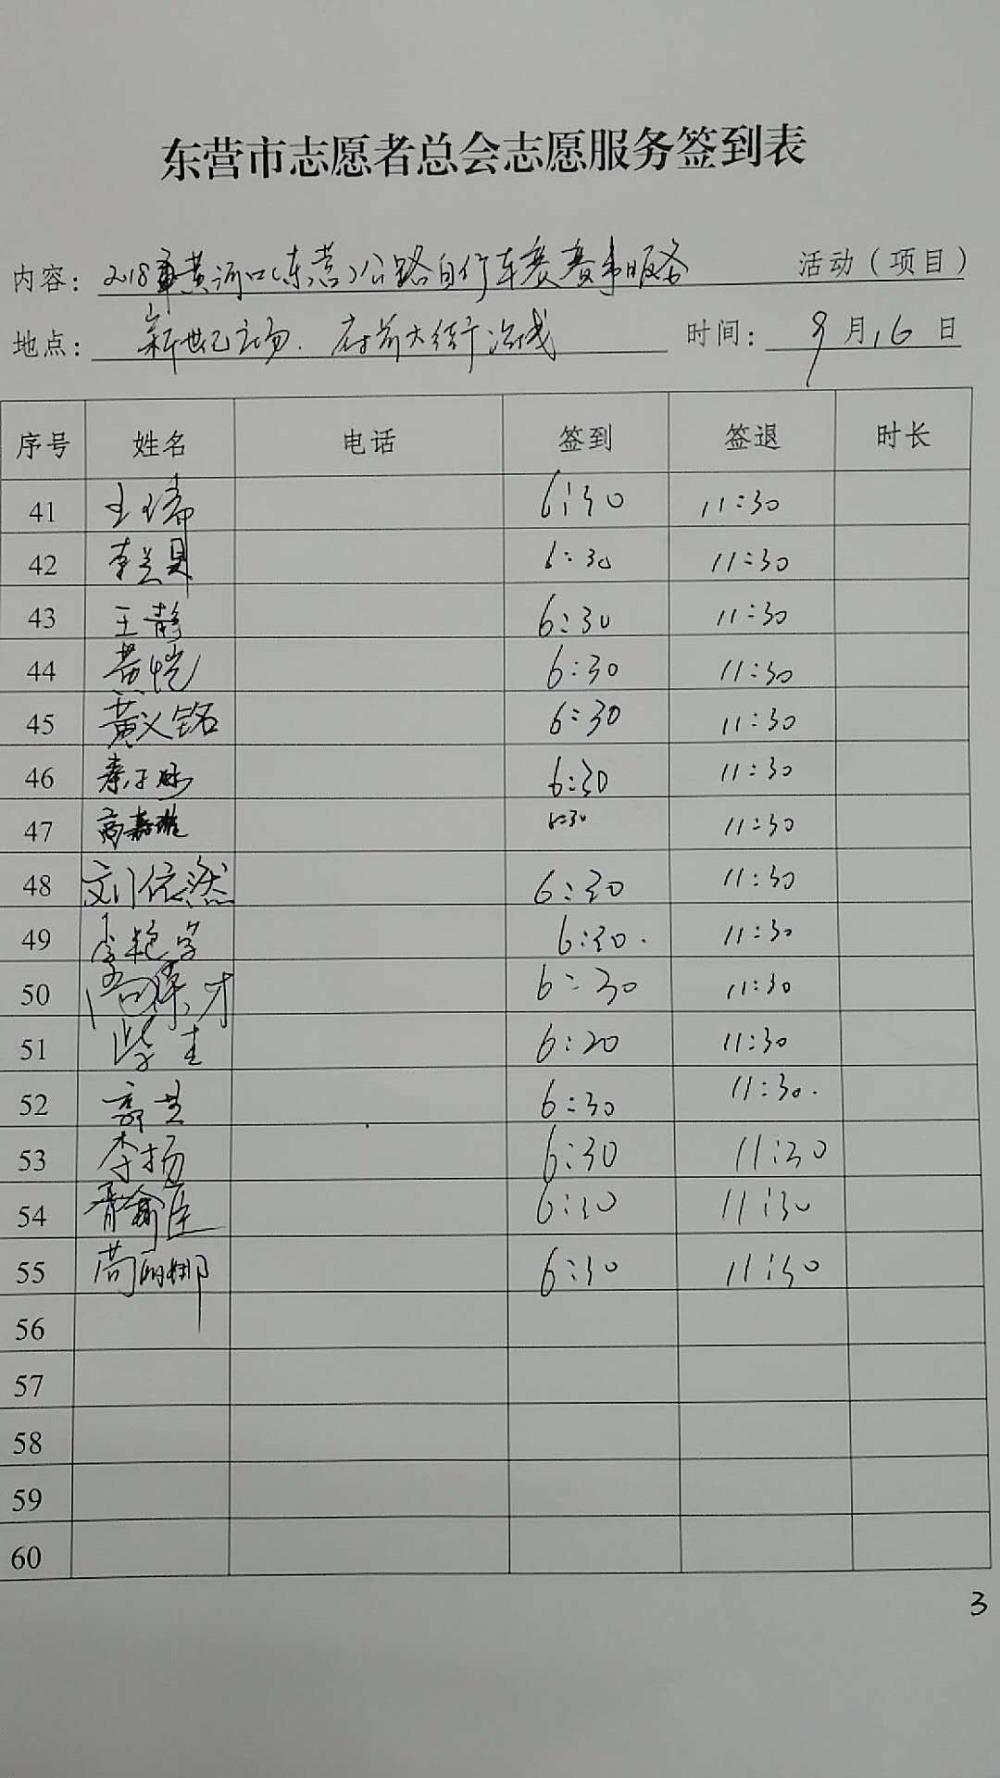 东营市志愿者总会志愿服务签到表
内容: 2018年黄河口(东营)公路自行车赛赛事服务 活动(项目)
地点: 新世纪广场、府前大街沿线 时间: 9月16日
序号 姓名 电话 签到 签退 时长
41 王瑞 6:30 11:30
42 李兰 6:30 11:30
43 王静 6:30 11:30
44 黄恺 6:30 11:30
45 黄义铭 6:30 11:30
46 秦子 6:30 11:30
47 高嘉 6:30 11:30
48 刘依然 6:30 11:30
49 李艳 6:30. 11:30
50 6:30 11:30
51 6:20 11:30
52 6:30 11:30.
53 李扬 6:30 11:30
54 6:30 11:30
55 尚丽娜 6:30 11:30
56
57
58
59
60
3